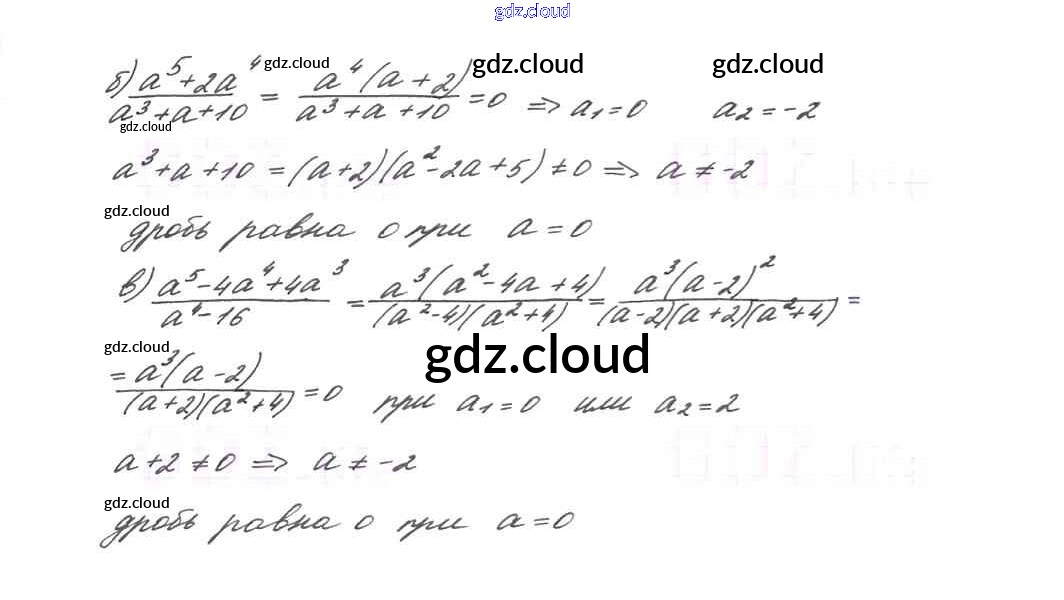 gdz.cloud
б) (a⁵+2a⁴)/(a³+a+10) = (a⁴(a+2))/(a³+a+10) = 0 => a₁=0 a₂=-2
gdz.cloud gdz.cloud gdz.cloud
gdz.cloud
a³+a+10 = (a+2)(a²-2a+5) ≠ 0 => a ≠ -2
gdz.cloud
дробь равна 0 при a = 0
в) (a⁵-4a⁴+4a³)/(a⁴-16) = (a³(a²-4a+4))/((a²-4)(a²+4)) = (a³(a-2)²)/((a-2)(a+2)(a²+4)) =
gdz.cloud gdz.cloud
= (a³(a-2))/((a+2)(a²+4)) = 0 при a₁=0 или a₂=2
a+2 ≠ 0 => a ≠ -2
gdz.cloud
дробь равна 0 при a=0